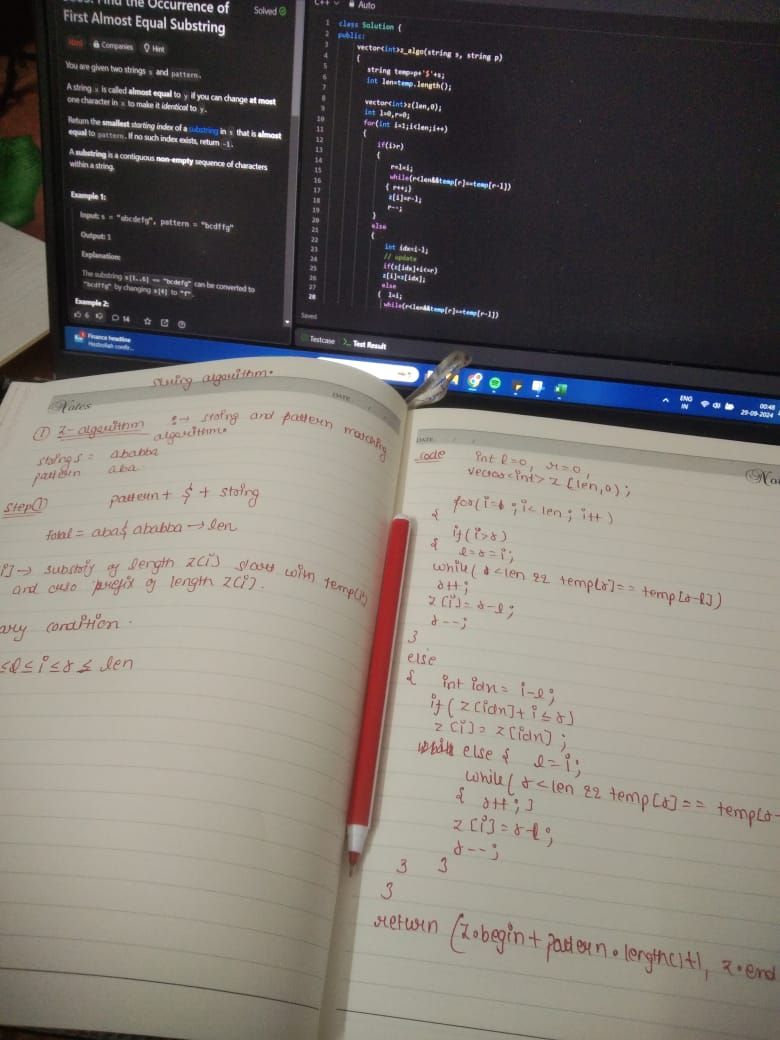 the Occurrence of
First Almost Equal Substring
Solved
Hard Companies Hint
You are given two strings s and pattern.
A string x is called almost equal to y if you can change at most
one character in x to make it identical to y.
Return the smallest starting index of a substring in s that is almost
equal to pattern. If no such index exists, return -1.
A substring is a contiguous non-empty sequence of characters
within a string.
Example 1:
Input: s = "abcdefg", pattern = "bcdffg"
Output: 1
Explanation:
The substring s[1..6] == "bcdefg" can be converted to
"bcdffg" by changing s[4] to "f".
Example 2:
6 14
C++ Auto
1 class Solution {
2 public:
3 vector<int>z_algo(string s, string p)
4 {
5 string temp=p+'$'+s;
6 int len=temp.length();
7
8 vector<int>z(len,0);
9 int l=0,r=0;
10 for(int i=1;i<len;i++)
11 {
12 if(i>r)
13 {
14 r=l=i;
15 while(r<len&&temp[r]==temp[r-l])
16 { r++;}
17 z[i]=r-l;
18 r--;
19 }
20 else
21 {
22 int idx=i-l;
23 // update
24 if(z[idx]+i<=r)
25 z[i]=z[idx];
26 else
27 { l=i;
28 while(r<len&&temp[r]==temp[r-l])
Saved
Testcase Test Result
Finance headline
Hezbollah confir...
ENG
IN
00:48
29-09-2024
string algorithm.
Notes
DATE
① Z-algorithm :→ string and pattern matching
algorithm.
string s = ababba
pattern aba
Step①
pattern + $ + string
total = aba$ ababba → len
i] → substoig of length z(i) start with temp(i)
and also prefix of length z(i).
ary condition.
≤ l ≤ i ≤ r ≤ len
DATE
code
int l=0, r=0,
vector<int> z (len,0);
for(i= ; i< len; i++)
{
if(i>r)
{ l=r=i;
while( r<len && temp[r]== temp[r-l])
r++;
z[i]= r-l;
r--;
}
else
{ int idn= i-l;
if( z[idn]+ i ≤ r)
z[i]= z[idn] ;
else { l=i;
while( r<len && temp[r]== temp[r-
{ r++; }
z[i]=r-l;
r--;
} }
}
return (z.begin+ pattern.length()+1, z.end